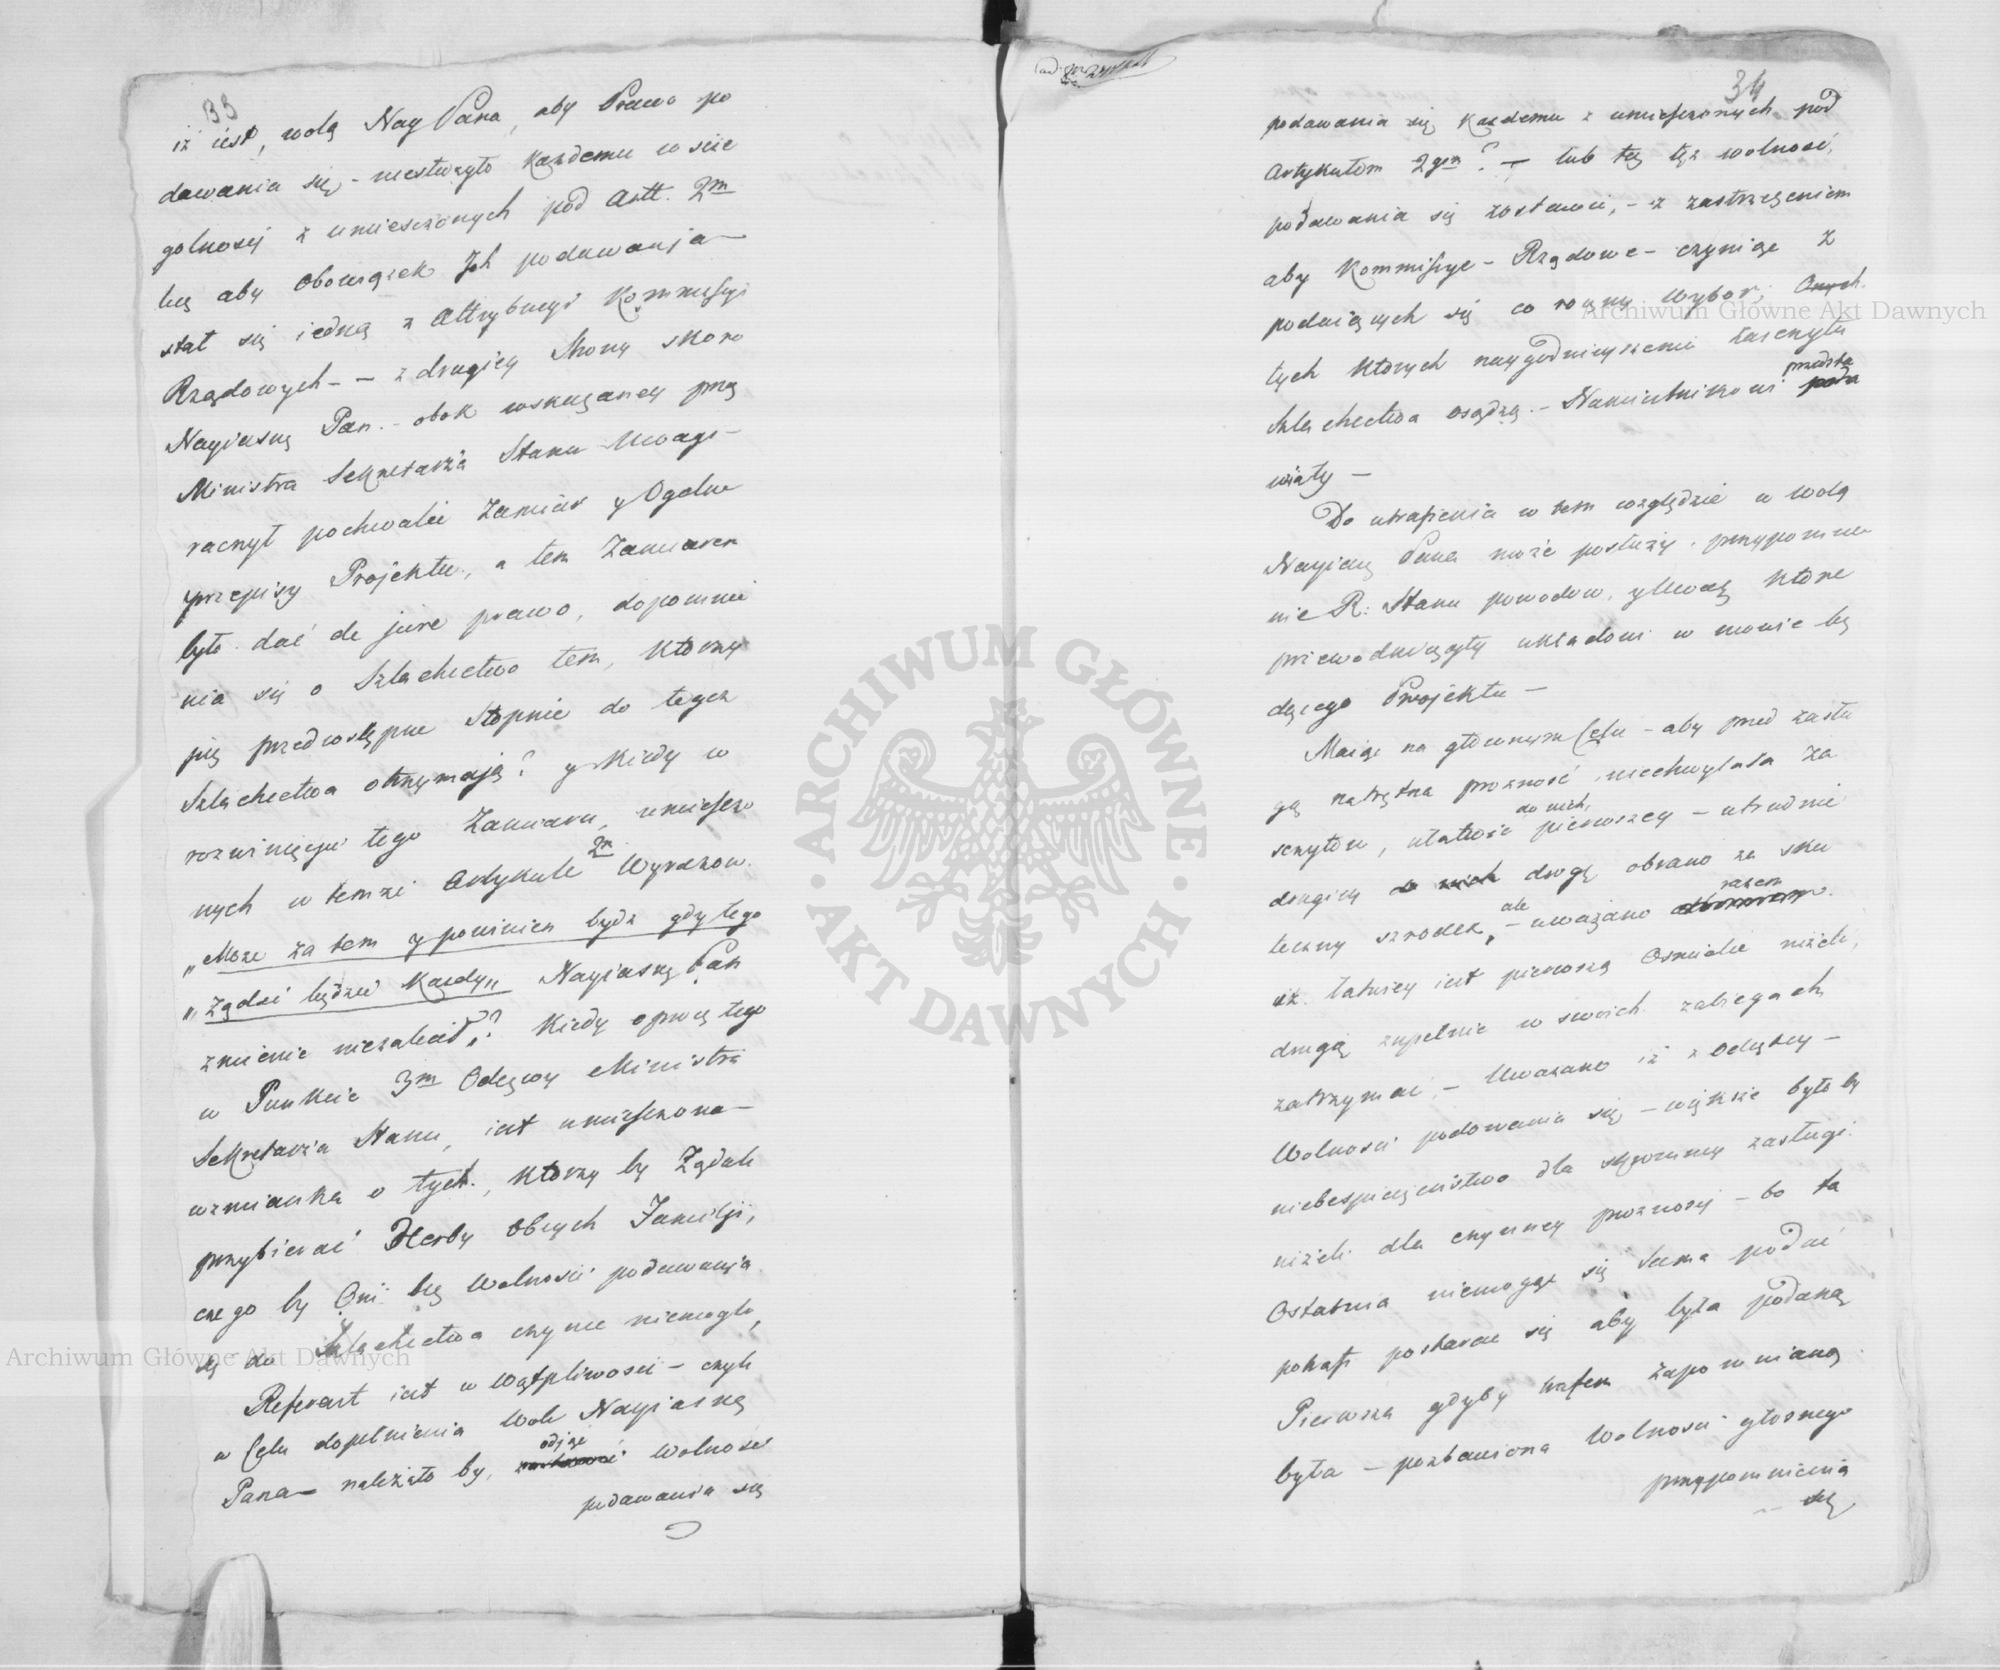 33
iż iest, wolą Nay Pana, aby Prawo po
dawania się - niesłużyło każdemu w szcze
gólności z umieszczonych pod Artt. 2m
lecz aby Obowiązek Ich podawania
stał się iedną z Attrybucyi Kommissyi
Rządowych - - z drugiey Strony skoro
Nayiaśny Pan - obok wskazaney przez
Ministra Sekretarza Stanu Uwagi -
raczył pochwalić Zamiar y Ogólne
przepisy Projektu, a tem Zamiarem
było dać de jure prawo, dopomnie
nia się o Szlachectwo tem, którzy
pią przedwstępne Stopnie do tegoż
Szlachectwa otrzymają? y kiedy w
rozwinięciu tego Zamiaru, umieszczo
nych w temże Artykule 2m Wyrazow
„Może zatem y powinien bydź gdy tego
„żądać będzie każdy„ Nayiaśny Pan
zmienić niezalecił? Kiedy oprócz tego
w Punkcie 3m Odezwy Ministra
Sekretarza Stanu, iest umieszczona
wzmianka o tych, którzy by Żądali
przybierać Herby Obcych Familji,
czego by Oni bez Wolności podawania
się do Szlachectwa czynić niemogli,
Referent iest w Wątpliwości - czyli
w Celu dopełnienia Woli Nayiaśnego
Pana - należało by, odjąć wolność
podawania się
34
podawania się każdemu z umieszczonych pod
Artykułem 2gim? - lub też tęż wolność,
podawania się zostawić, - z zastrzeżeniem
aby Kommissye - Rządowe - czyniąc z
podaiących się co roczny wybór, Onych.
tych których naygodnieyszemi zaszczytu
Szlachectwa osądzą. - Namiestnikowi przedsta
wiały -
Do utrafienia w tem względzie w wolą
Nayiaś Pana może posłuży, przypomnie
nie R: Stanu powodow, y Uwag które
przewodniczyły układowi w mowie bę
dącego Projektu -
Maiąc na głównym Celu - aby przed zasłu
gą natrętna prożność niechwytała za
szczytow, ułatwić do nich, pierwszey - utrudnić
drugiey drogę obrano za sku
teczny szrodek, - ale uważano razem
iż łatwiey iest pierwszą Ośmielić niżeli,
drugą zupełnie w swoich zabiegach
zatrzymać, - Uważano iż z Odiętey -
Wolności podawania się - większe było by
niebespieczeństwo dla skromney zasługi
niżeli dla czynney prożności - bo ta
Ostatnia niemogąc się sama podać
potrafi postarać się aby była podaną
Pierwsza gdyby trafem zapomnianą
była - pozbawiona Wolności głośnego
przypomnienia
się
Archiwum Główne Akt Dawnych
Archiwum Główne Akt Dawnych
ARCHIWUM GŁÓWNE · AKT DAWNYCH ·